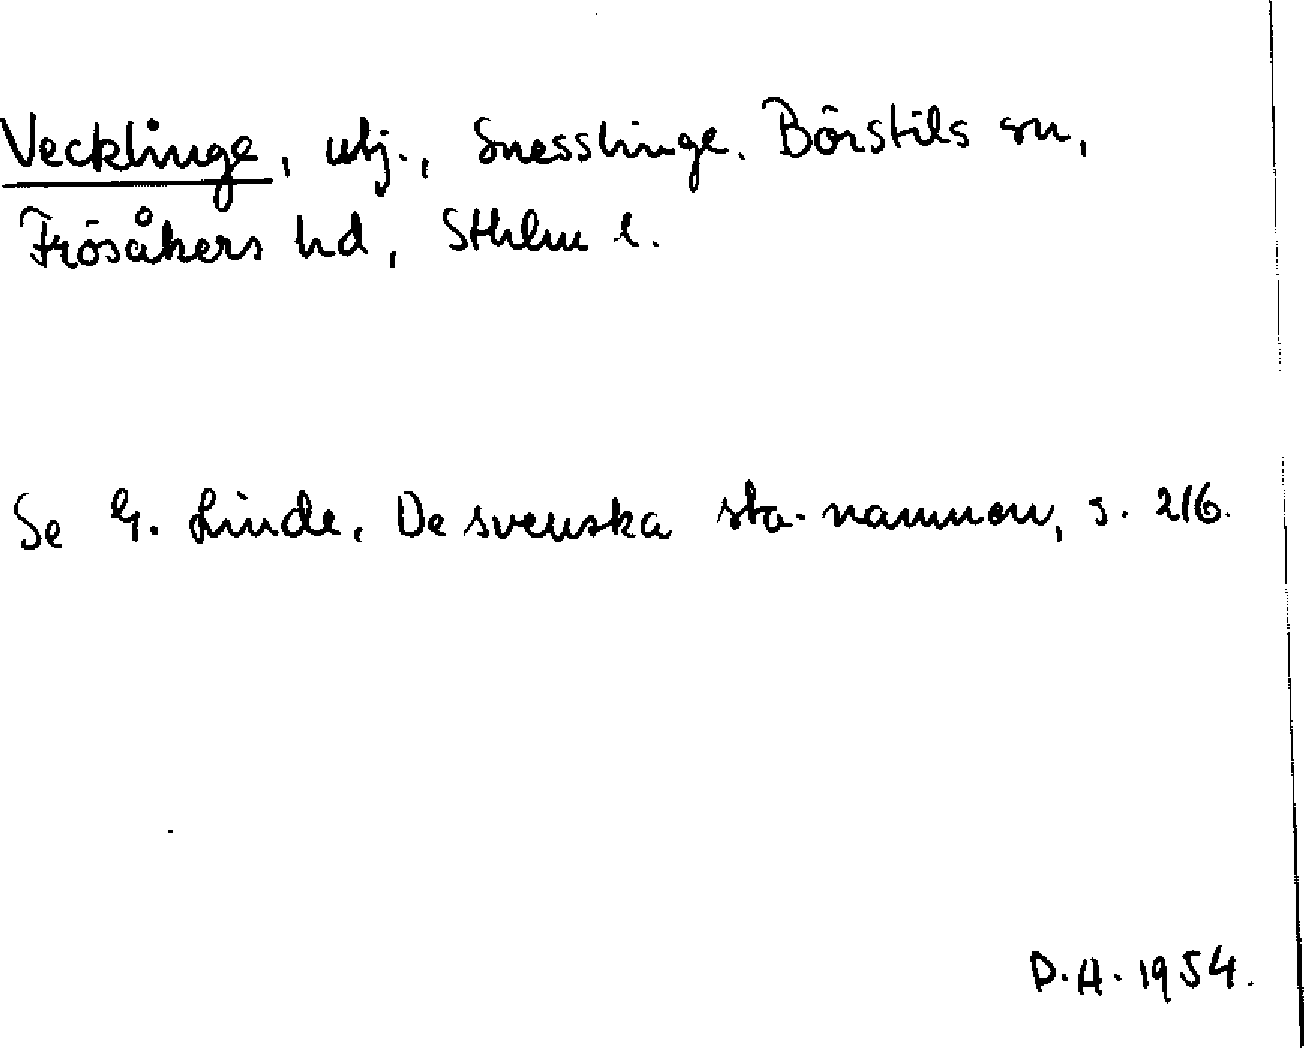 Vecklinge, utj., Snesslinge. Börstils sn,
Frösåkers hd, Sthlm l.
Se G. Linde, De svenska sta-namnen, s. 216.
D.A. 1954.